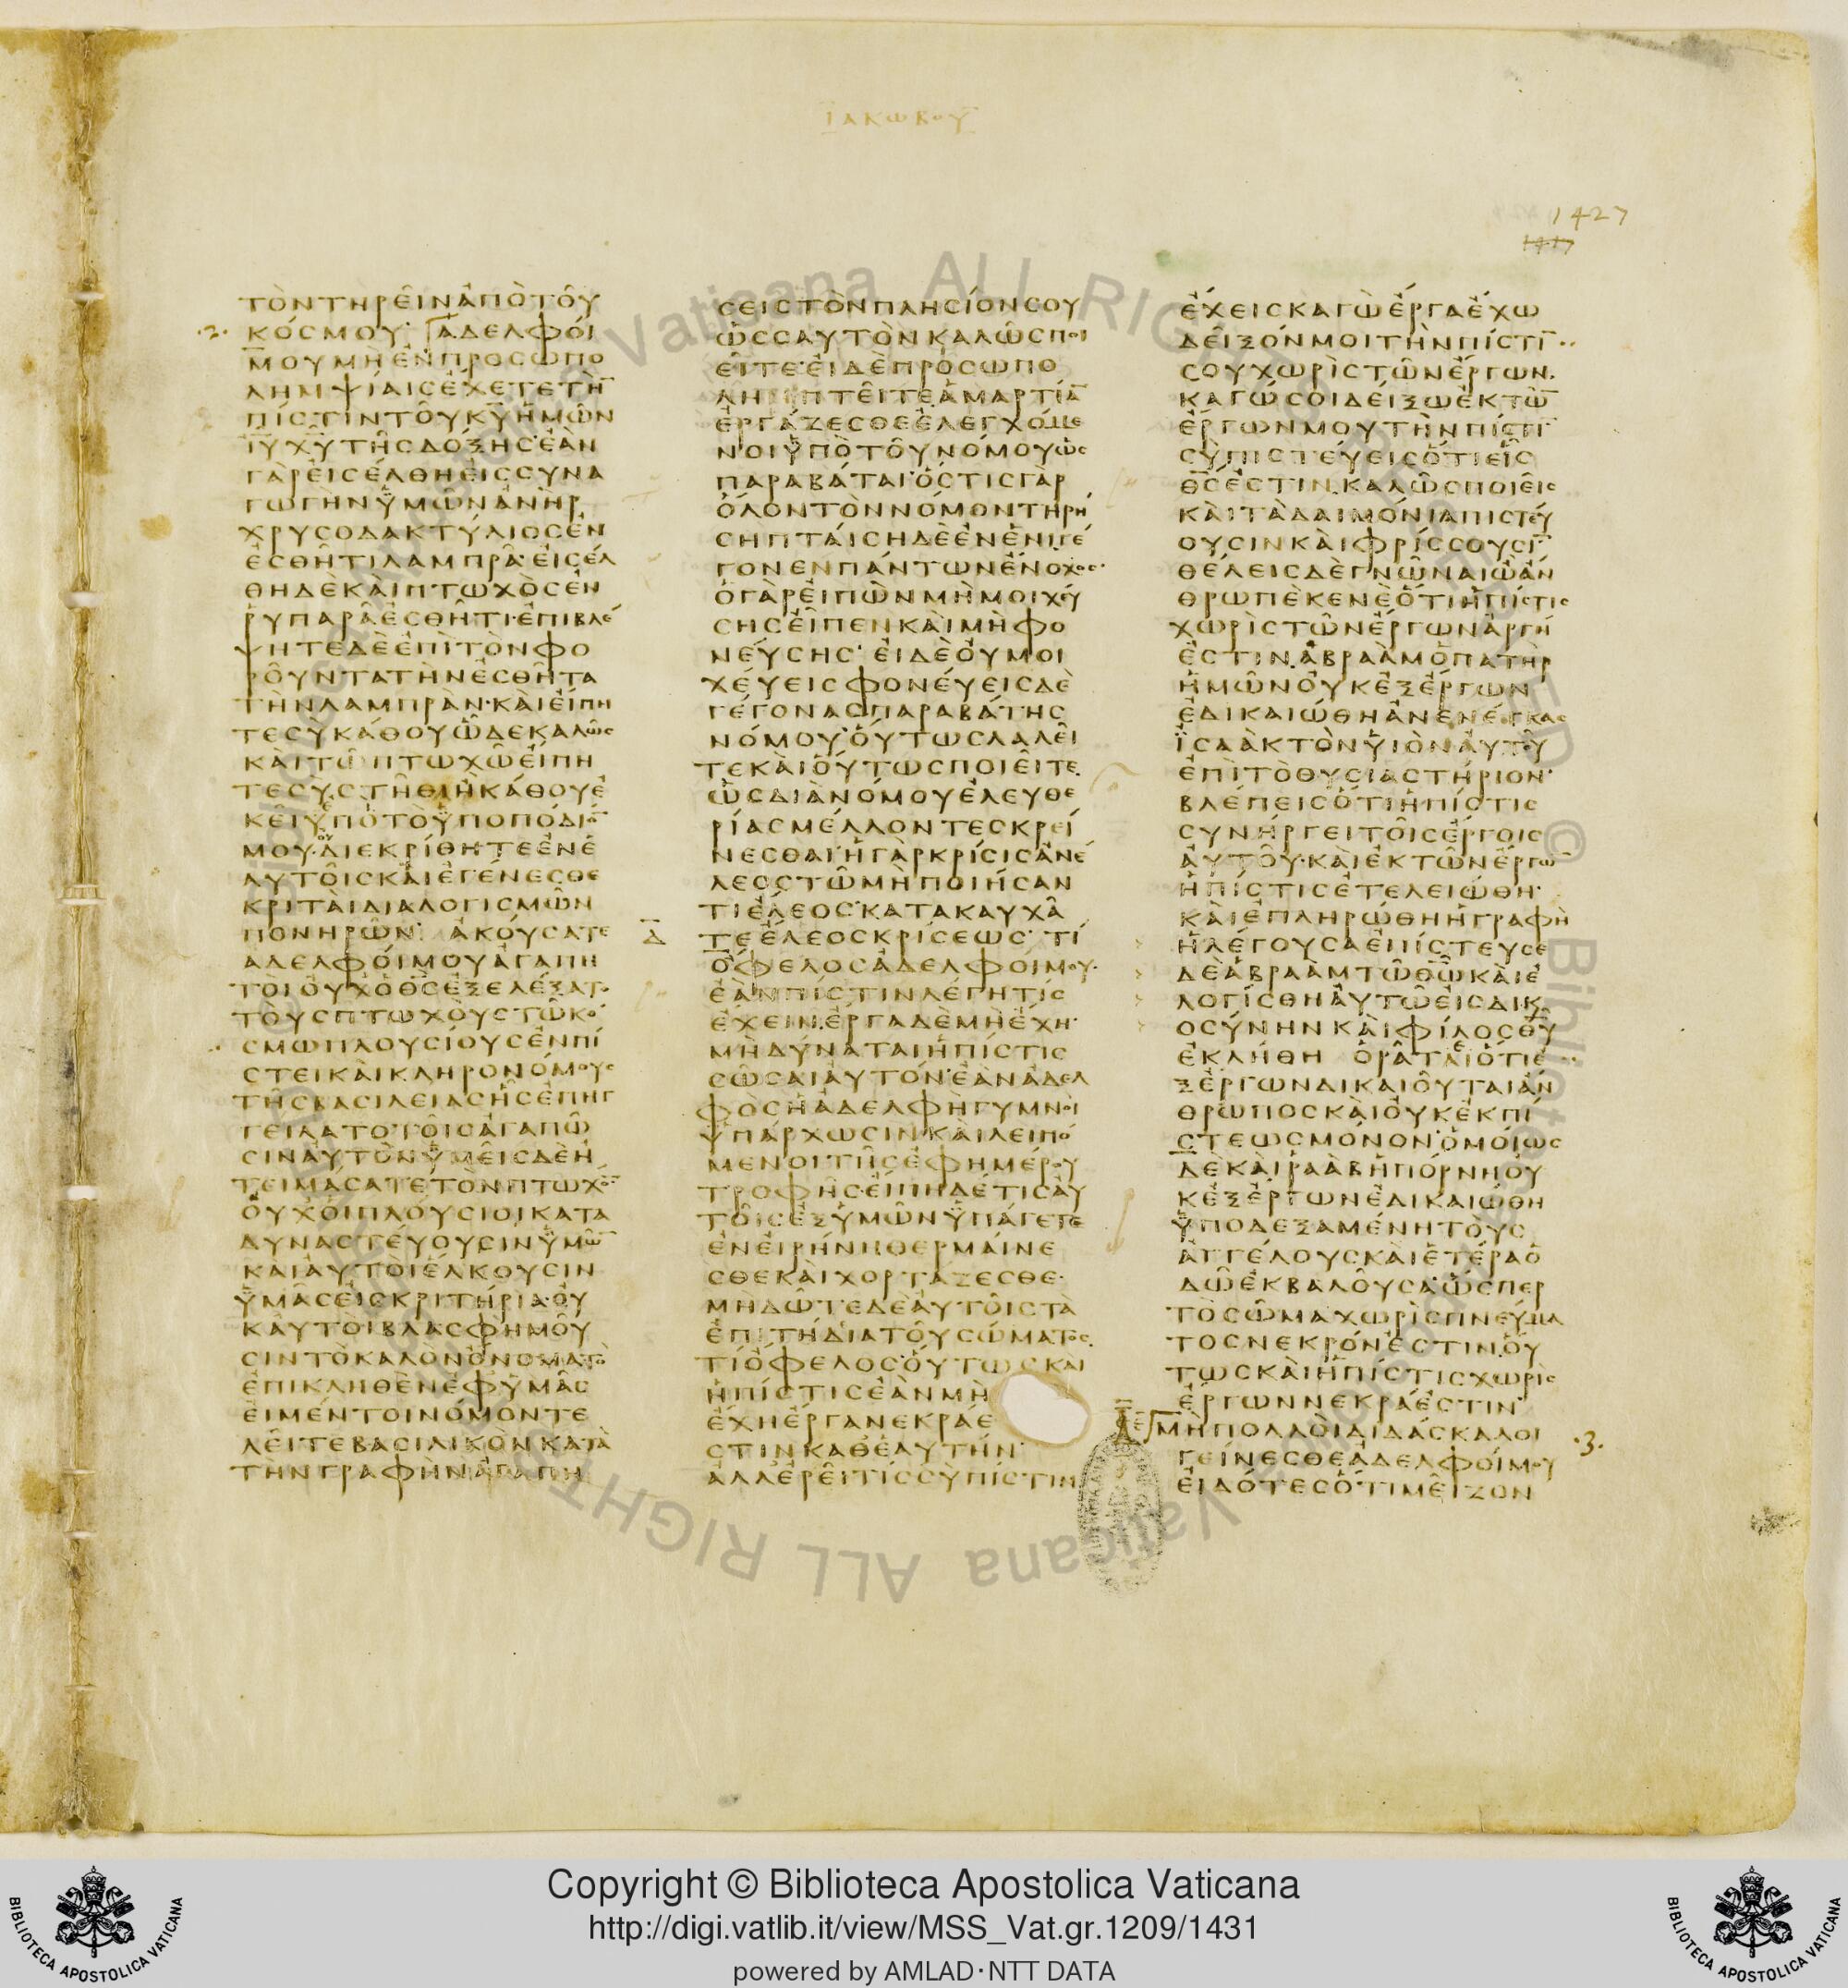 ΙΑΚΩΒΟΥ
1427
1417
ΤΟΝΤΗΡΕΙΝΑΠΟΤΟΥ
.2. ΚΟΣΜΟΥ ΑΔΕΛΦΟΙ
ΜΟΥΜΗΕΝΠΡΟΣΩΠΟ
ΛΗΜΨΙΑΙΣΕΧΕΤΕΤΗ¯
ΠΙΣΤΙΝΤΟΥΚΥΗΜΩΝ
ΙΥΧΥΤΗΣΔΟΞΗΣΕΑΝ
ΓΑΡΕΙΣΕΛΘΗΕΙΣΣΥΝΑ
ΓΩΓΗΝΥΜΩΝΑΝΗΡ
ΧΡΥΣΟΔΑΚΤΥΛΙΟΣΕΝ
ΕΣΘΗΤΙΛΑΜΠΡΑ·ΕΙΣΕΛ
ΘΗΔΕΚΑΙΠΤΩΧΟΣΕΝ
ΡΥΠΑΡΑΕΣΘΗΤΙ·ΕΠΙΒΛΕ
ΨΗΤΕΔΕΕΠΙΤΟΝΦΟ
ΡΟΥΝΤΑΤΗΝΕΣΘΗΤΑ
ΤΗΝΛΑΜΠΡΑΝ·ΚΑΙΕΙΠΗ
ΤΕΣΥΚΑΘΟΥΩΔΕΚΑΛΩΣ
ΚΑΙΤΩΠΤΩΧΩΕΙΠΗ
ΤΕΣΥΣΤΗΘΙΗΚΑΘΟΥΕ
ΚΕΙΥΠΟΤΟΥΠΟΠΟΔΙΟ¯
ΜΟΥ·ΔΙΕΚΡΙΘΗΤΕΕΝΕ
ΑΥΤΟΙΣΚΑΙΕΓΕΝΕΣΘΕ
ΚΡΙΤΑΙΔΙΑΛΟΓΙΣΜΩΝ
ΠΟΝΗΡΩΝ ΑΚΟΥΣΑΤΕ
ΑΔΕΛΦΟΙΜΟΥΑΓΑΠΗ
ΤΟΙΟΥΧΟΘΣΕΞΕΛΕΞΑΤΟ
ΤΟΥΣΠΤΩΧΟΥΣΤΩΚΟ
ΣΜΩΠΛΟΥΣΙΟΥΣΕΝΠΙ
ΣΤΕΙΚΑΙΚΛΗΡΟΝΟΜΟΥΣ
ΤΗΣΒΑΣΙΛΕΙΑΣΗΣΕΠΗΓ
ΓΕΙΛΑΤΟΤΟΙΣΑΓΑΠΩ
ΣΙΝΑΥΤΟΝΥΜΕΙΣΔΕΗ
ΤΕΙΜΑΣΑΤΕΤΟΝΠΤΩΧΟ¯
ΟΥΧΟΙΠΛΟΥΣΙΟΙΚΑΤΑ
ΔΥΝΑΣΤΕΥΟΥΣΙΝΥΜΩ¯
ΚΑΙΑΥΤΟΙΕΛΚΟΥΣΙΝ
ΥΜΑΣΕΙΣΚΡΙΤΗΡΙΑ·ΟΥ
ΚΑΥΤΟΙΒΛΑΣΦΗΜΟΥ
ΣΙΝΤΟΚΑΛΟΝΟΝΟΜΑΤΟ
ΕΠΙΚΛΗΘΕΝΕΦΥΜΑΣ
ΕΙΜΕΝΤΟΙΝΟΜΟΝΤΕ
ΛΕΙΤΕΒΑΣΙΛΙΚΟΝΚΑΤΑ
ΤΗΝΓΡΑΦΗΝΑΓΑΠΗ
ΣΕΙΣΤΟΝΠΛΗΣΙΟΝΣΟΥ
ΩΣΣΑΥΤΟΝΚΑΛΩΣΠΟΙ
ΕΙΤΕ·ΕΙΔΕΠΡΟΣΩΠΟ
ΛΗΠΤΕΙΤΕΑΜΑΡΤΙΑ¯
ΕΡΓΑΖΕΣΘΕΕΛΕΓΧΟΜΕ
ΝΟΙΥΠΟΤΟΥΝΟΜΟΥΩΣ
ΠΑΡΑΒΑΤΑΙ·ΟΣΤΙΣΓΑΡ
ΟΛΟΝΤΟΝΝΟΜΟΝΤΗΡΗ
ΣΗΠΤΑΙΣΗΔΕΕΝΕΝΙΓΕ
ΓΟΝΕΝΠΑΝΤΩΝΕΝΟΧΟΣ·
ΟΓΑΡΕΙΠΩΝΜΗΜΟΙΧΕΥ
ΣΗΣΕΙΠΕΝΚΑΙΜΗΦΟ
ΝΕΥΣΗΣ· ΕΙΔΕΟΥΜΟΙ
ΧΕΥΕΙΣΦΟΝΕΥΕΙΣΔΕ
ΓΕΓΟΝΑΣΠΑΡΑΒΑΤΗΣ
ΝΟΜΟΥ·ΟΥΤΩΣΛΑΛΕΙ
ΤΕΚΑΙΟΥΤΩΣΠΟΙΕΙΤΕ
ΩΣΔΙΑΝΟΜΟΥΕΛΕΥΘΕ
ΡΙΑΣΜΕΛΛΟΝΤΕΣΚΡΕΙ
ΝΕΣΘΑΙ·ΗΓΑΡΚΡΙΣΙΣΑΝΕ
ΛΕΟΣΤΩΜΗΠΟΙΗΣΑΝ
ΤΙΕΛΕΟΣ·ΚΑΤΑΚΑΥΧΑ
Δ ΤΕΕΛΕΟΣΚΡΙΣΕΩΣ· ΤΙ
ΟΦΕΛΟΣΑΔΕΛΦΟΙΜΟΥ·
ΕΑΝΠΙΣΤΙΝΛΕΓΗΤΙΣ
ΕΧΕΙΝ.ΕΡΓΑΔΕΜΗΕΧΗ·
ΜΗΔΥΝΑΤΑΙΗΠΙΣΤΙΣ
ΣΩΣΑΙΑΥΤΟΝ·ΕΑΝΑΔΕΛ
ΦΟΣΗΑΔΕΛΦΗΓΥΜΝΟΙ
ΥΠΑΡΧΩΣΙΝΚΑΙΛΕΙΠΟ
ΜΕΝΟΙΤΗΣΕΦΗΜΕΡΟΥ
ΤΡΟΦΗΣ·ΕΙΠΗΔΕΤΙΣΑΥ
ΤΟΙΣΕΞΥΜΩΝΥΠΑΓΕΤΕ
ΕΝΕΙΡΗΝΗΘΕΡΜΑΙΝΕ
ΣΘΕΚΑΙΧΟΡΤΑΖΕΣΘΕ·
ΜΗΔΩΤΕΔΕΑΥΤΟΙΣΤΑ
ΕΠΙΤΗΔΙΑΤΟΥΣΩΜΑΤΟΣ
ΤΙΟΦΕΛΟΣ·ΟΥΤΩΣΚΑΙ
ΗΠΙΣΤΙΣΕΑΝΜΗ
ΕΧΗΕΡΓΑΝΕΚΡΑΕ
ΣΤΙΝΚΑΘΕΑΥΤΗΝ·
ΑΛΛΕΡΕΙΤΙΣΣΥΠΙΣΤΙΝ
ΕΧΕΙΣΚΑΓΩΕΡΓΑΕΧΩ
ΔΕΙΞΟΝΜΟΙΤΗΝΠΙΣΤΙ¯
ΣΟΥΧΩΡΙΣΤΩΝΕΡΓΩΝ.
ΚΑΓΩΣΟΙΔΕΙΞΩΕΚΤΩ¯
ΕΡΓΩΝΜΟΥΤΗΝΠΙΣΤΙ¯
ΣΥΠΙΣΤΕΥΕΙΣΟΤΙΕΙΣ
ΘΣΕΣΤΙΝ.ΚΑΛΩΣΠΟΙΕΙΣ
ΚΑΙΤΑΔΑΙΜΟΝΙΑΠΙΣΤΕΥ
ΟΥΣΙΝΚΑΙΦΡΙΣΣΟΥΣΙ¯
ΘΕΛΕΙΣΔΕΓΝΩΝΑΙΩΑΝ
ΘΡΩΠΕΚΕΝΕΟΤΙΗΠΙΣΤΙΣ
ΧΩΡΙΣΤΩΝΕΡΓΩΝΑΡΓΗ
ΕΣΤΙΝ.ΑΒΡΑΑΜΟΠΑΤΗΡ
ΗΜΩΝΟΥΚΕΞΕΡΓΩΝ
ΕΔΙΚΑΙΩΘΗΑΝΕΝΕΓΚΑΣ
ΙΣΑΑΚΤΟΝΥΙΟΝΑΥΤΟΥ
ΕΠΙΤΟΘΥΣΙΑΣΤΗΡΙΟΝ·
ΒΛΕΠΕΙΣΟΤΙΗΠΙΣΤΙΣ
ΣΥΝΗΡΓΕΙΤΟΙΣΕΡΓΟΙΣ
ΑΥΤΟΥ·ΚΑΙΕΚΤΩΝΕΡΓΩ¯
ΗΠΙΣΤΙΣΕΤΕΛΕΙΩΘΗ·
ΚΑΙΕΠΛΗΡΩΘΗΗΓΡΑΦΗ
ΗΛΕΓΟΥΣΑΕΠΙΣΤΕΥΣΕ
ΔΕΑΒΡΑΑΜΤΩΘΩΚΑΙΕ
ΛΟΓΙΣΘΗΑΥΤΩΕΙΣΔΙΚ
ΟΣΥΝΗΝΚΑΙΦΙΛΟΣΘΥ
ΕΚΛΗΘΗ ΟΡΑΤΑΙΟΤΙΕ
ΞΕΡΓΩΝΔΙΚΑΙΟΥΤΑΙΑΝ
ΘΡΩΠΟΣΚΑΙΟΥΚΕΚΠΙ
ΣΤΕΩΣΜΟΝΟΝ·ΟΜΟΙΩΣ
ΔΕΚΑΙΡΑΑΒΗΠΟΡΝΗΟΥ
ΚΕΞΕΡΓΩΝΕΔΙΚΑΙΩΘΗ
ΥΠΟΔΕΞΑΜΕΝΗΤΟΥΣ
ΑΓΓΕΛΟΥΣΚΑΙΕΤΕΡΑΟ
ΔΩΕΚΒΑΛΟΥΣΑ·ΩΣΠΕΡ
ΤΟΣΩΜΑΧΩΡΙΣΠΝΕΥΜΑ
ΤΟΣΝΕΚΡΟΝΕΣΤΙΝ.ΟΥ
ΤΩΣΚΑΙΗΠΙΣΤΙΣΧΩΡΙΣ
ΕΡΓΩΝΝΕΚΡΑΕΣΤΙΝ
ΜΗΠΟΛΛΟΙΔΙΔΑΣΚΑΛΟΙ .3.
ΓΕΙΝΕΣΘΕΑΔΕΛΦΟΙΜΟΥ
ΕΙΔΟΤΕΣΟΤΙΜΕΙΖΟΝ
Vaticana ALL RIGHTS RESERVED © Biblioteca Apostolica Vaticana ALL RIGHTS RESERVED
Copyright © Biblioteca Apostolica Vaticana
http://digi.vatlib.it/view/MSS_Vat.gr.1209/1431
powered by AMLAD·NTT DATA
BIBLIOTECA APOSTOLICA VATICANA
BIBLIOTECA APOSTOLICA VATICANA